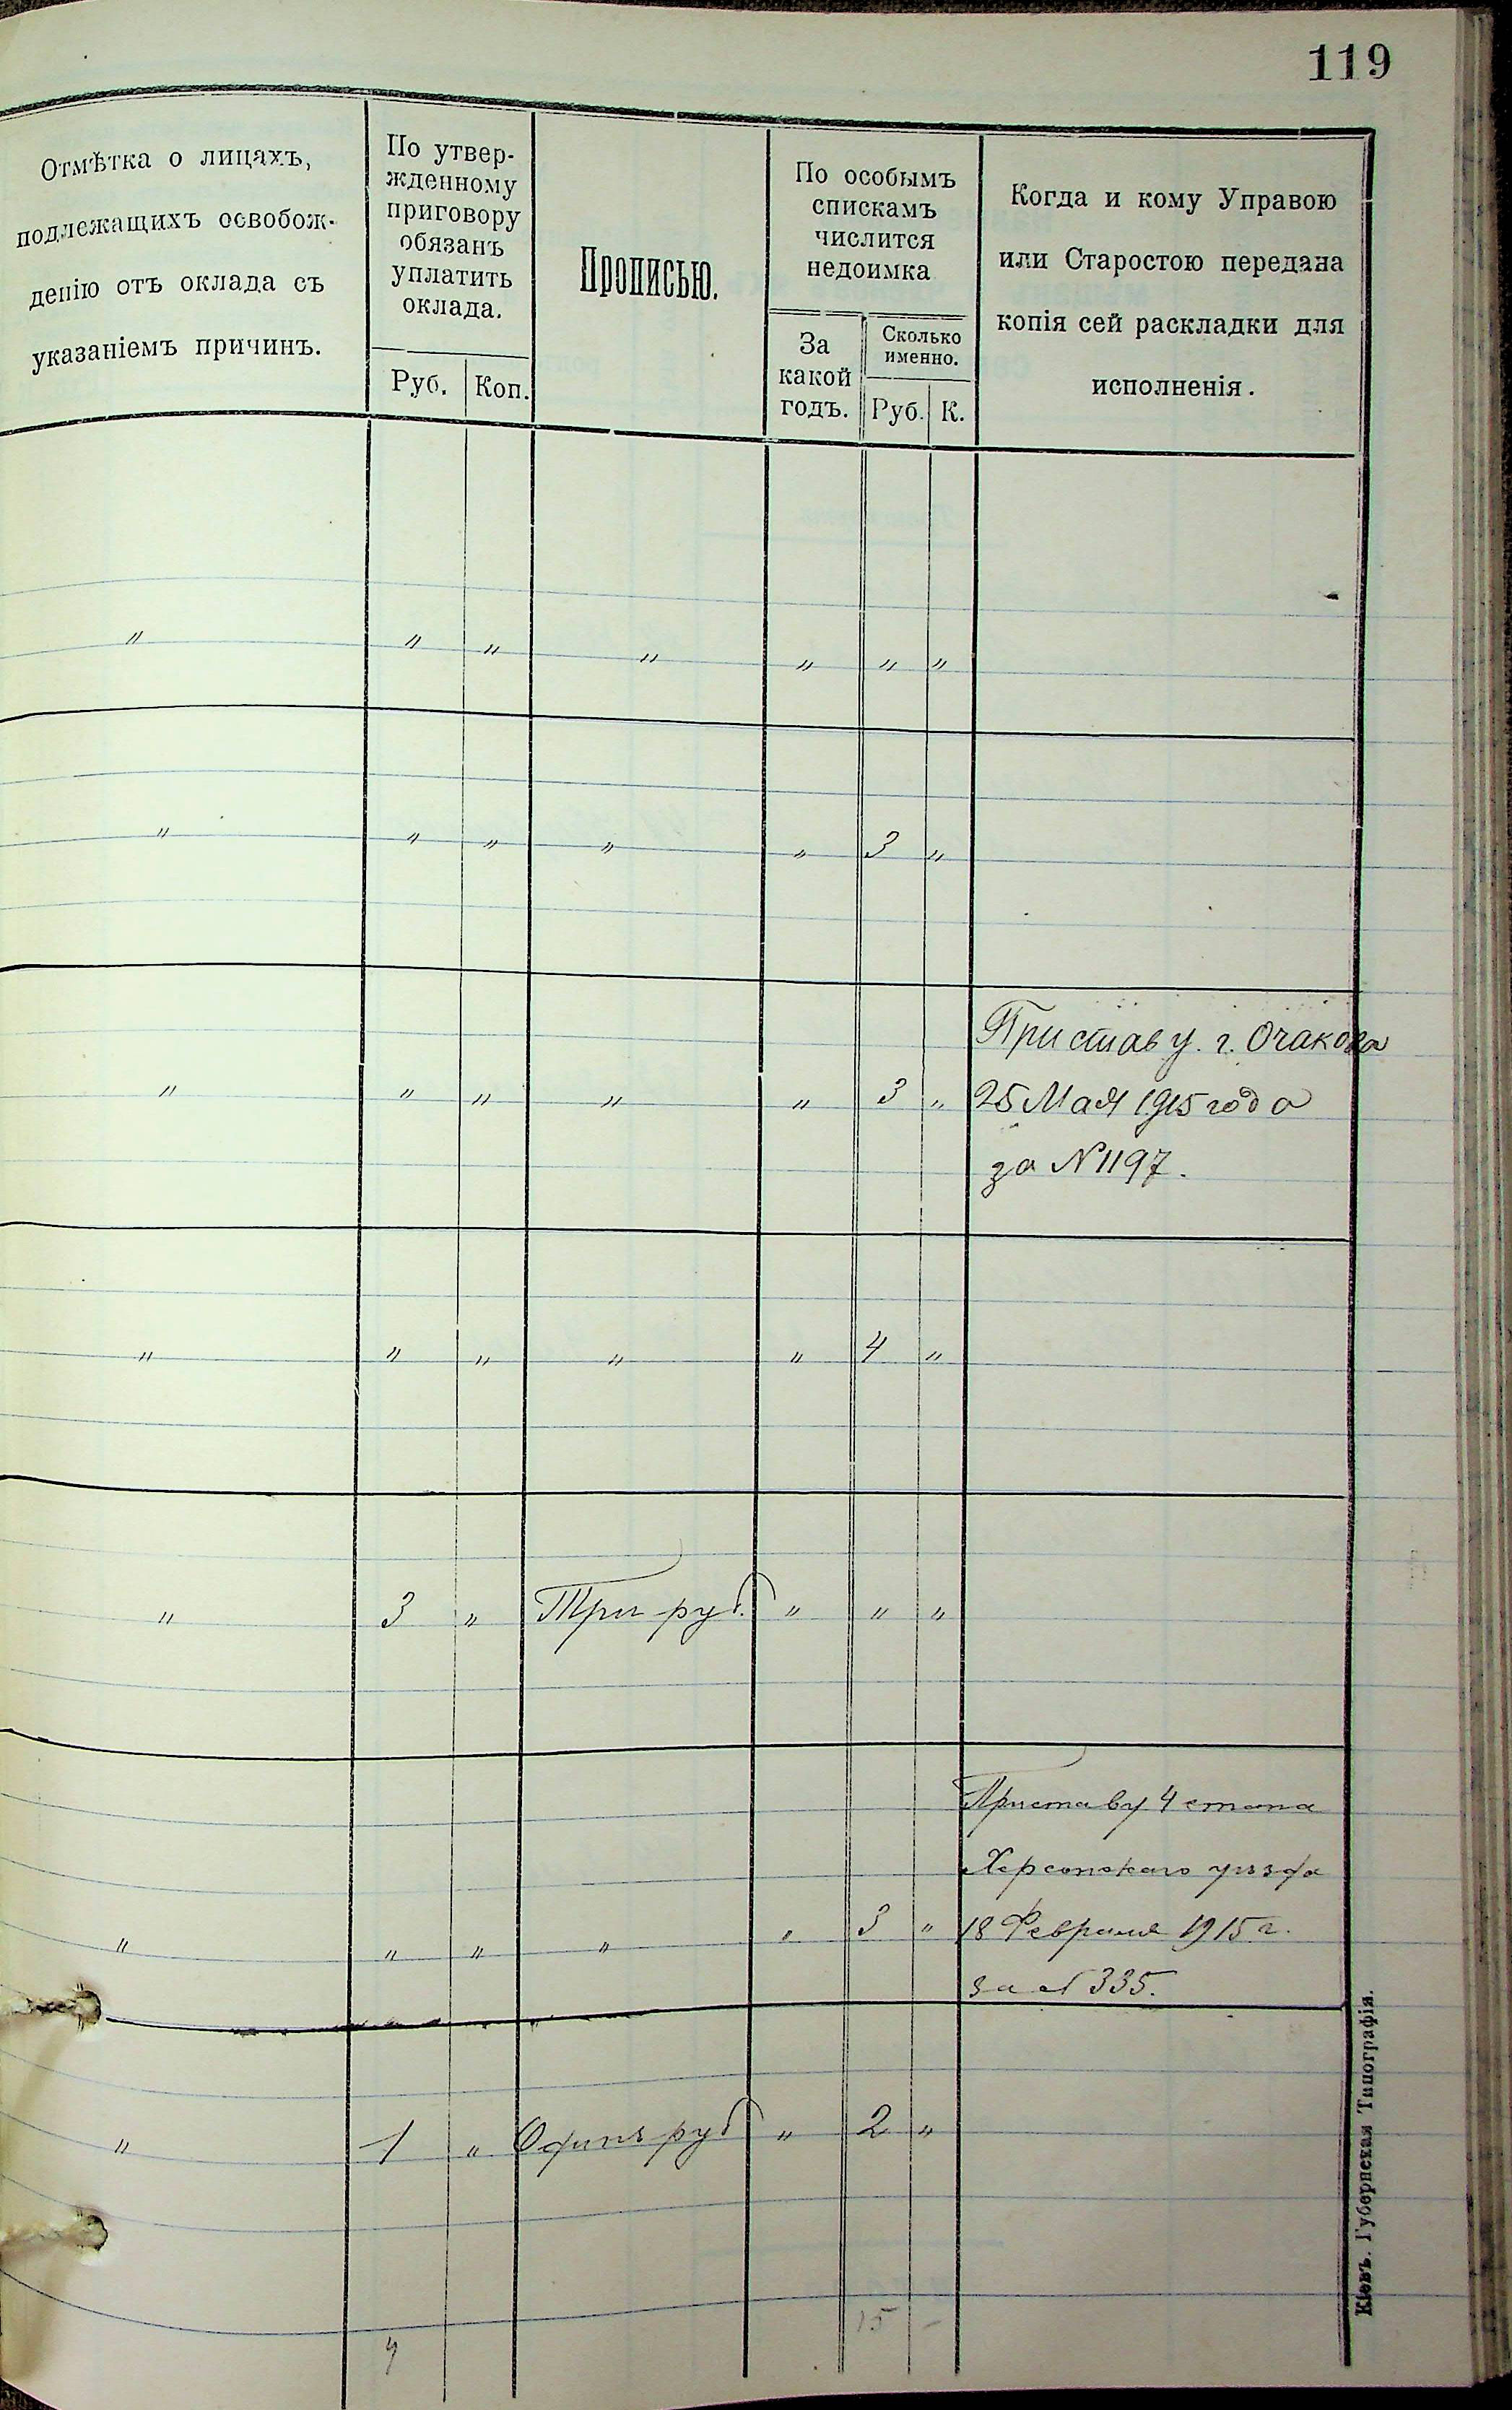 119
Отмѣтка о лицахъ,
подлежащихъ освобож-
денію отъ оклада съ
указаніемъ причинъ.
По утвер-
жденному
приговору
обязанъ
уплатить
оклада.
Руб.
Коп.
Прописью.
По особымъ
спискамъ
числится
недоимка
За
какой
годъ.
Сколько
именно.
Руб.
К.
Когда и кому Управою
или Старостою передана
копія сей раскладки для
исполненія.
" " " " " " "
" " " " " 3 "
Приставу г. Очакова
" " " " " 3 " 25 Мая 1915 года
за № 1197.
" " " " " 4 "
" 3 " Три руб. " " "
Приставу 4 стана
Херсонскаго уѣзда
" " " " " 3 " 18 Февраля 1915 г.
за № 335.
" 1 " Одинъ руб " 2 "
4 15 -
Кіевъ. Губернская Типографія.